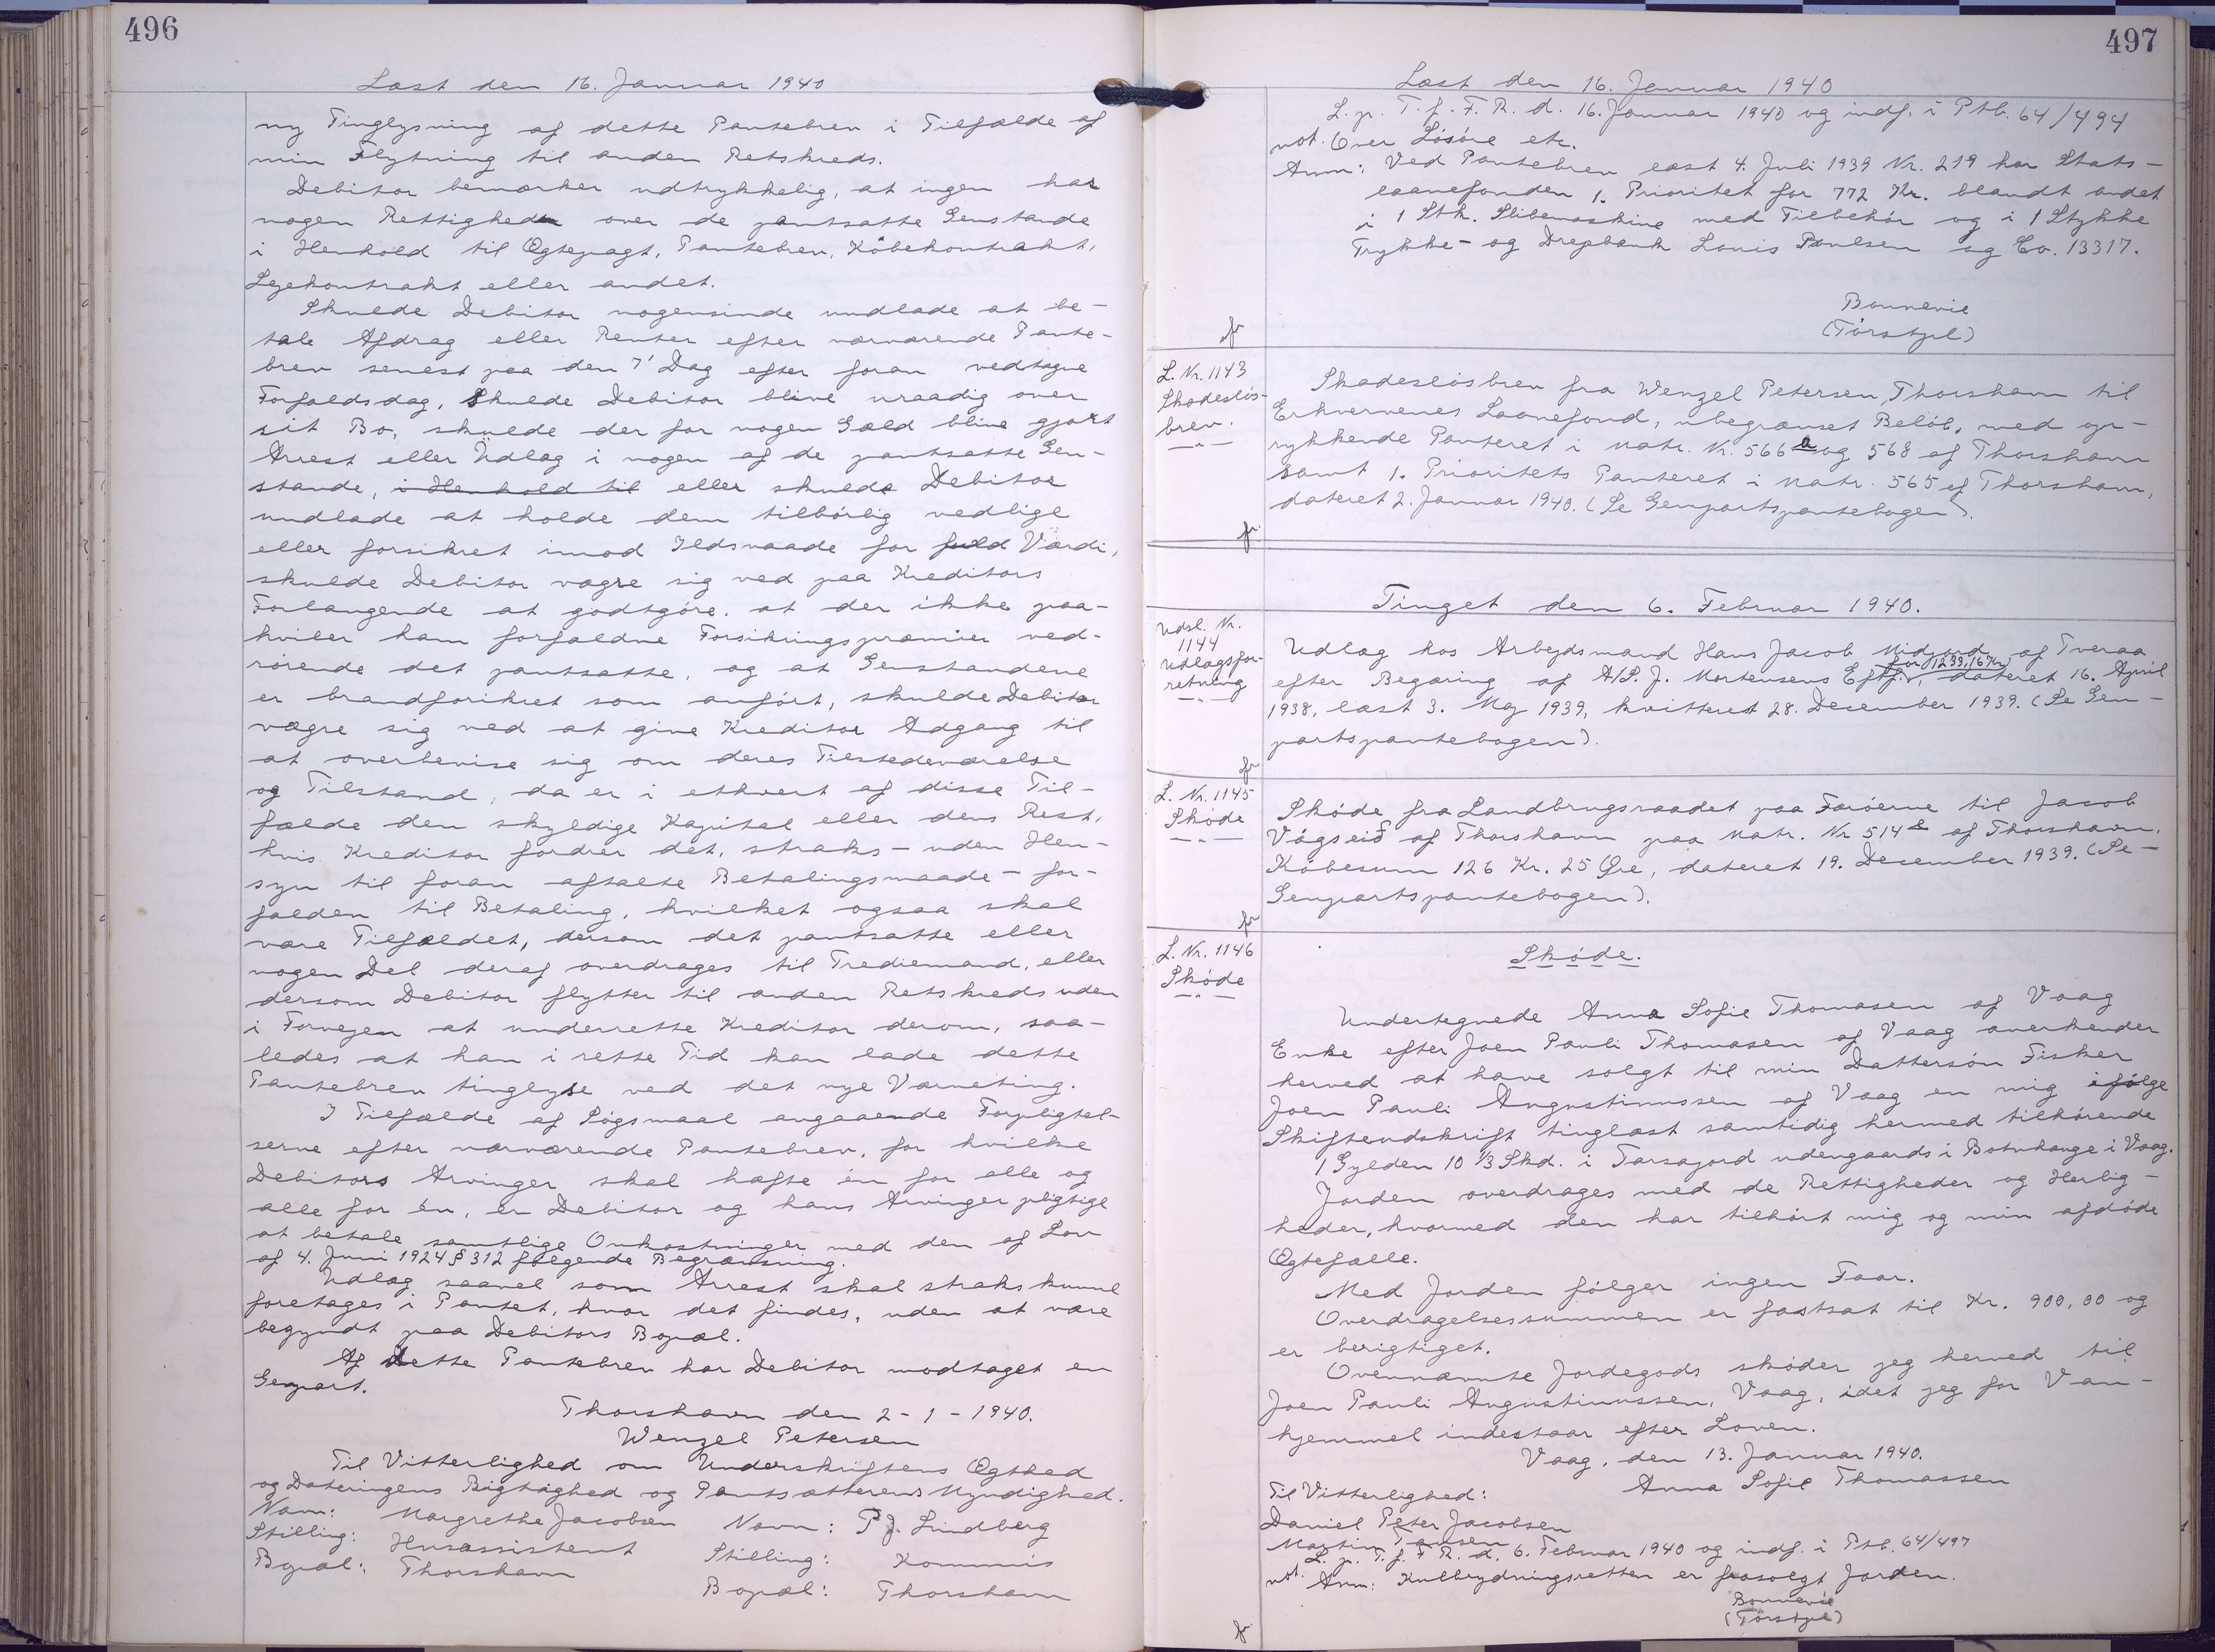 496
Læst den 16. Januar 1940
ny Tinglysning af dette Pantebrev i Tilfælde af
min Flytning til anden Retskreds.
Debitor bemærker udtrykkelig, at ingen har
nogen Rettigheder over de pantsatte Genstande
i Henhold til Ægtepagt, Pantebrev, Købekontrakt,
Lejekontrakt eller andet.
Skulde Debitor nogensinde undlade at be-
tale Afdrag eller Renter efter nærværende Pante-
brev senest paa den 7' Dag efter foran vedtagne
Forfaldsdag, Skulde Debitor blive uraadig over
sit Bo, skulde der for nogen Gæld blive gjort
Arrest eller Udlæg i nogen af de pantsatte Gen-
stande, i Henhold til eller skulde Debitor
undlade at holde dem tilbørlig vedlige
eller forsikret imod Ildsvaade for fuld Værdi,
skulde Debitor vægre sig ved paa Kreditors
Forlangende at godtgøre, at der ikke paa-
hviler ham forfaldne Forsikringspræmier ved-
rørende det pantsatte, og at Genstandene
er brandforsikret som anført, skulde Debitor
vægre sig ved at give Kreditor Adgang til
at overbevise sig om deres Tilstedeværelse
og Tilstand, da er i ethvert af disse Til-
fælde den skyldige Kapital eller dens Rest,
hvis Kreditor fordrer det, straks - uden Hen-
syn til foran aftalte Betalingsmaade - for-
falden til Betaling, hvilket ogsaa skal
være Tilfældet, dersom det pantsatte eller
nogen Del deraf overdrages til Trediemand, eller
dersom Debitor flytter til anden Retskreds uden
i Forvejen at underrette Kreditor derom, saa-
ledes at han i rette Tid kan lade dette
Pantebrev tinglyse ved det nye Værneting.
I Tilfælde af Søgsmaal angaaende Forpligtel-
serne efter nærværende Pantebrev, for hvilke
Debitors Arvinger skal hæfte én for alle og
alle for én, er Debitor og hans Arvinger pligtige
at betale samtlige Omkostninger med den af Lov
af 4. Juni 1924 § 312 følgende Begrænsning.
Udlæg saavel som Arrest skal straks kunne
foretages i Pantet, hvor det findes, uden at være
begyndt paa Debitors Bopæl.
Af dette Pantebrev har Debitor modtaget en
Genpart.
Thorshavn den 2-1-1940.
Wenzel Petersen
Til Vitterlighed om Underskriftens Ægthed
og Dateringens Rigtighed og Pantsætterens Myndighed.
Navn: Margrethe Jacobsen Navn: P J. Lindberg
Stilling: Husassistent Stilling: Kommis
Bopæl: Thorshavn Bopæl: Thorshavn
497
Læst den 16. Januar 1940
L. p. T. f. F. R. d. 16. Januar 1940 og indf. i Ptb. 64/494
not. Over Løsøre etc.
Anm: Ved Pantebrev læst 4. Juli 1939 Nr. 219 har Stats-
laanefonden 1. Prioritet for 772 Kr. blandt andet
i 1 Stk. Slibemaskine med Tilbehør og i 1 Stykke
Trykke- og Drejebænk Louis Poulsen og Co. 13317.
Bonnevie
(Tórstjel)
L. Nr. 1143
Skadesløs-
brev.
Skadesløsbrev fra Wenzel Petersen, Thorshavn til
Erhvervenes Laanefond, ubegrænset Beløb, med op-
rykkende Panteret i Matr. Nr. 566 a og 568 af Thorshavn
samt 1. Prioritets Panteret i Matr. 565 af Thorshavn,
dateret 2. Januar 1940. (Se Genpartspantebogen).
Tinget den 6. Februar 1940.
Udsl. Nr.
1144
Udlægsfor-
retning
Udlæg hos Arbejdsmand Hans Jacob Midjord af Tveraa
for 1239,16 Kr.
efter Begæring af A/S. J. Mortensens Eftf., dateret 16. April
1938, læst 3. Maj 1939, kvitteret 28. December 1939. (Se Gen-
partspantebogen).
L. Nr. 1145
Skøde
Skøde fra Landbrugsraadet paa Færøerne til Jacob
Vágseið af Thorshavn paa Matr. Nr 514 af Thorshavn.
Købesum 126 Kr. 25 Øre, dateret 19. December 1939. (Se-
Genpartspantebogen).
L. Nr. 1146
Skøde
Skøde.
Undertegnede Anna Sofie Thomasen af Vaag
Enke efter Joen Pauli Thomasen af Vaag anerkender
herved at have solgt til min Dattersøn Fisker
Joen Pauli Augustinussen af Vaag en mig ifølge
Skifteudskrift tinglæst samtidig hermed tilhørende
1 Gylden 10 1/3 Skd. i Tarsajord udengaards i Botnhauge i Vaag.
Jorden overdrages med de Rettigheder og Herlig-
heder, hvormed den har tilhørt mig og min afdøde
Ægtefælle.
Med Jorden følger ingen Faar.
Overdragelsessummen er fastsat til Kr. 900,00 og
er berigtiget.
Ovennævnte Jordegods skøder jeg herved til
Joen Pauli Augustinussen, Vaag, idet jeg for Van-
hjemmel indestaar efter Loven.
Vaag, den 13. Januar 1940.
Anna Sofie Thomassen
Til Vitterlighed:
Daniel Peter Jacobsen
Martin Tausen
L. p. T. f. F R. d. 6. Februar 1940 og indf. i Ptb. 64/497
not. Anm: Kulbrydningsretten er frasolgt Jorden.
Bonnevie
(Tórstjel)